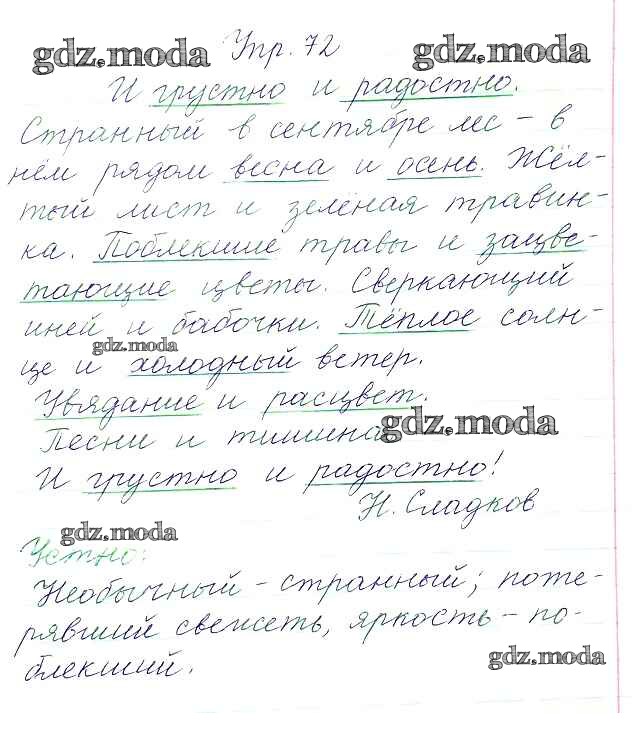 gdz.moda Упр. 72 gdz.moda
И грустно и радостно.
Странный в сентябре лес - в
нём рядом весна и осень. Жёл-
тый лист и зелёная травин-
ка. Поблекшие травы и зацве-
тающие цветы. Сверкающий
иней и бабочки. Тёплое солн-
gdz.moda
це и холодный ветер.
Увядание и расцвет.
Песни и тишина gdz.moda
И грустно и радостно!
Н. Сладков
gdz.moda
Устно:
Необычный - странный; поте-
рявший свежесть, яркость - по-
блекший.
gdz.moda